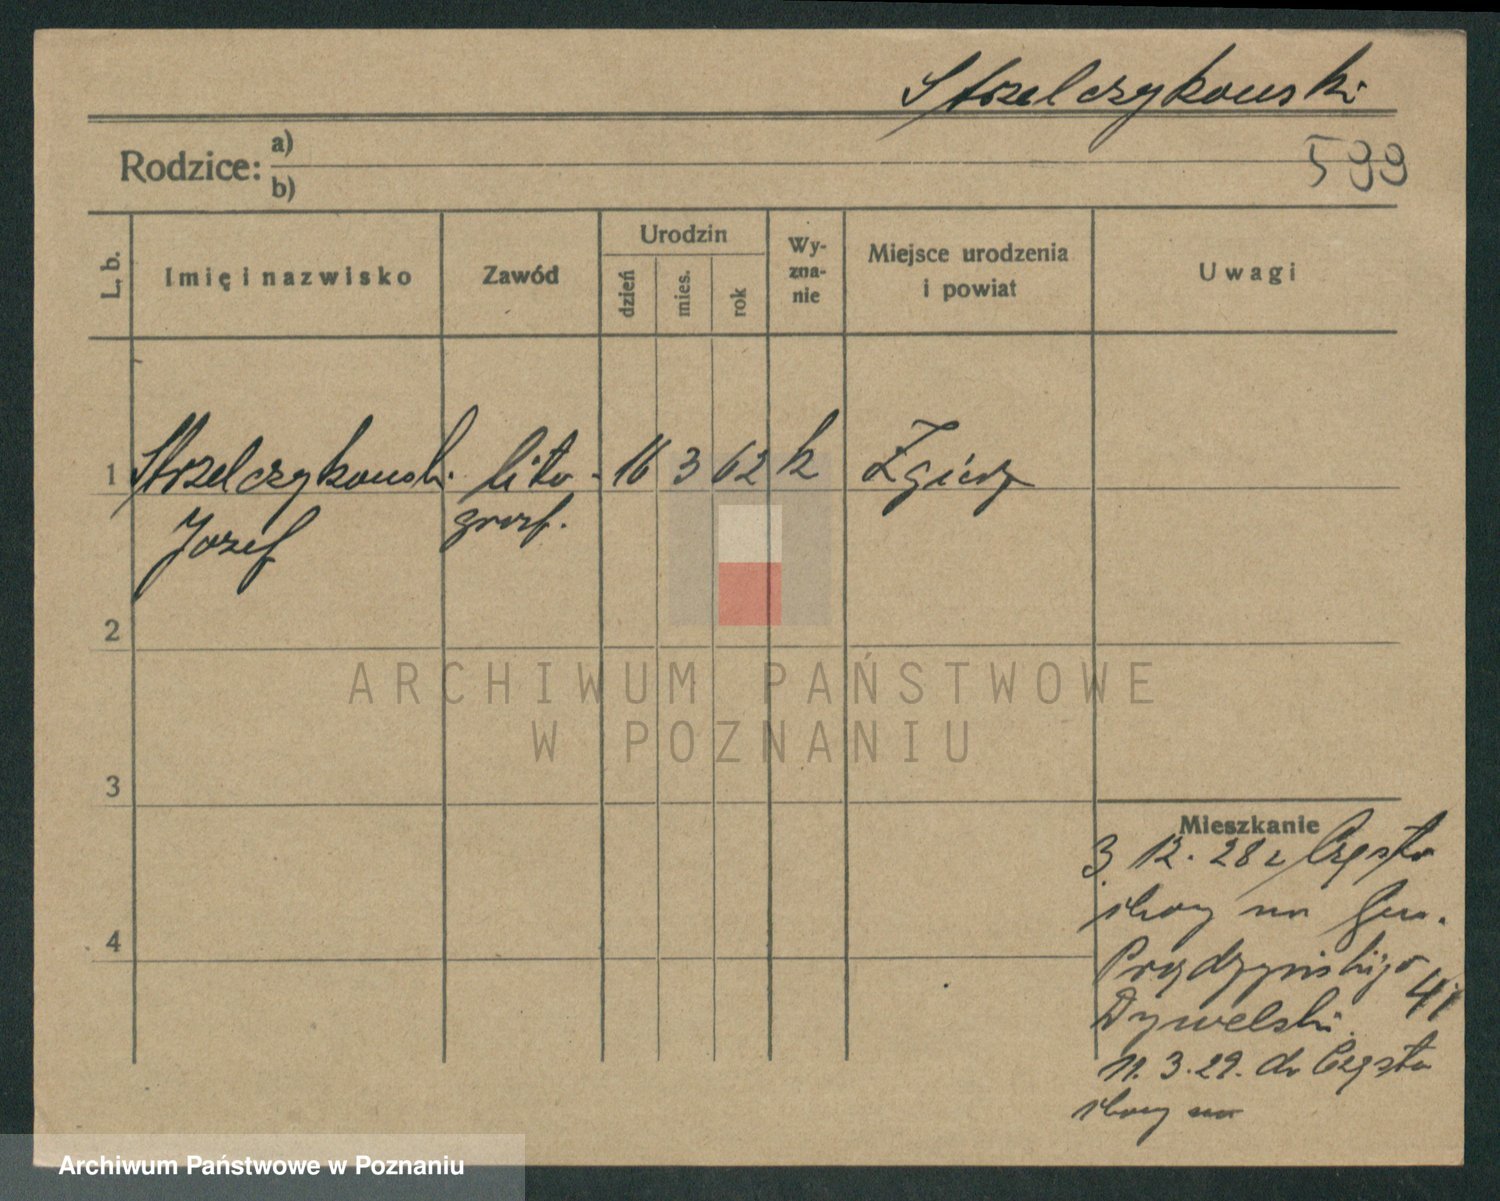 Strzelczykowski
Rodzice: a)
b)
599
L. b.
Imię i nazwisko
Zawód
Urodzin
dzień
mies.
rok
Wy-
zna-
nie
Miejsce urodzenia
i powiat
Uwagi
1 Strzelczykowski lito- 16 3 62 k Zgierz
Józef graf.
2
3
4
Mieszkanie
3. 12. 28 z Często
chowy na Gen.
Prądzyńskiego 41
Dywelski.
11. 3. 29. do Często
chowy
ARCHIWUM PAŃSTWOWE
W POZNANIU
Archiwum Państwowe w Poznaniu